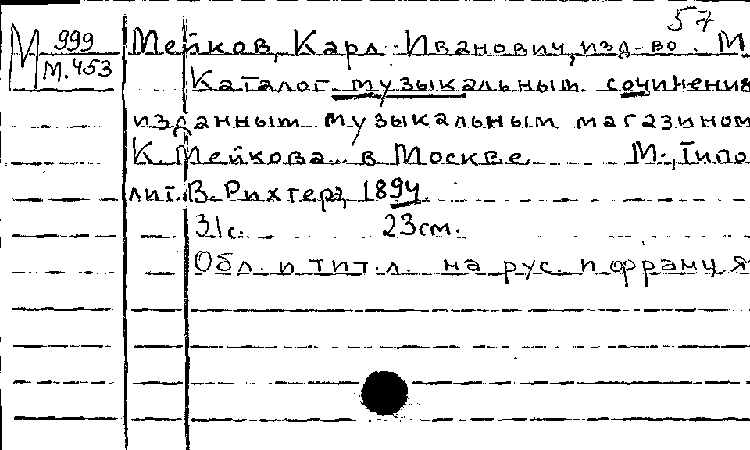 57
М 999
М.453
Мейков, Карл Иванович, изд-во. М
Каталог музыкальным сочинения
изданным музыкальным магазином
К. Мейкова в Москве М., Типо
лит. В. Рихтер, 1894.
31с. 23см.
Обл. и тит. л. на рус. и франц. я